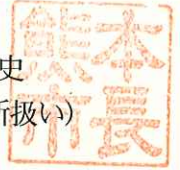 史
扱い)
熊本
市長